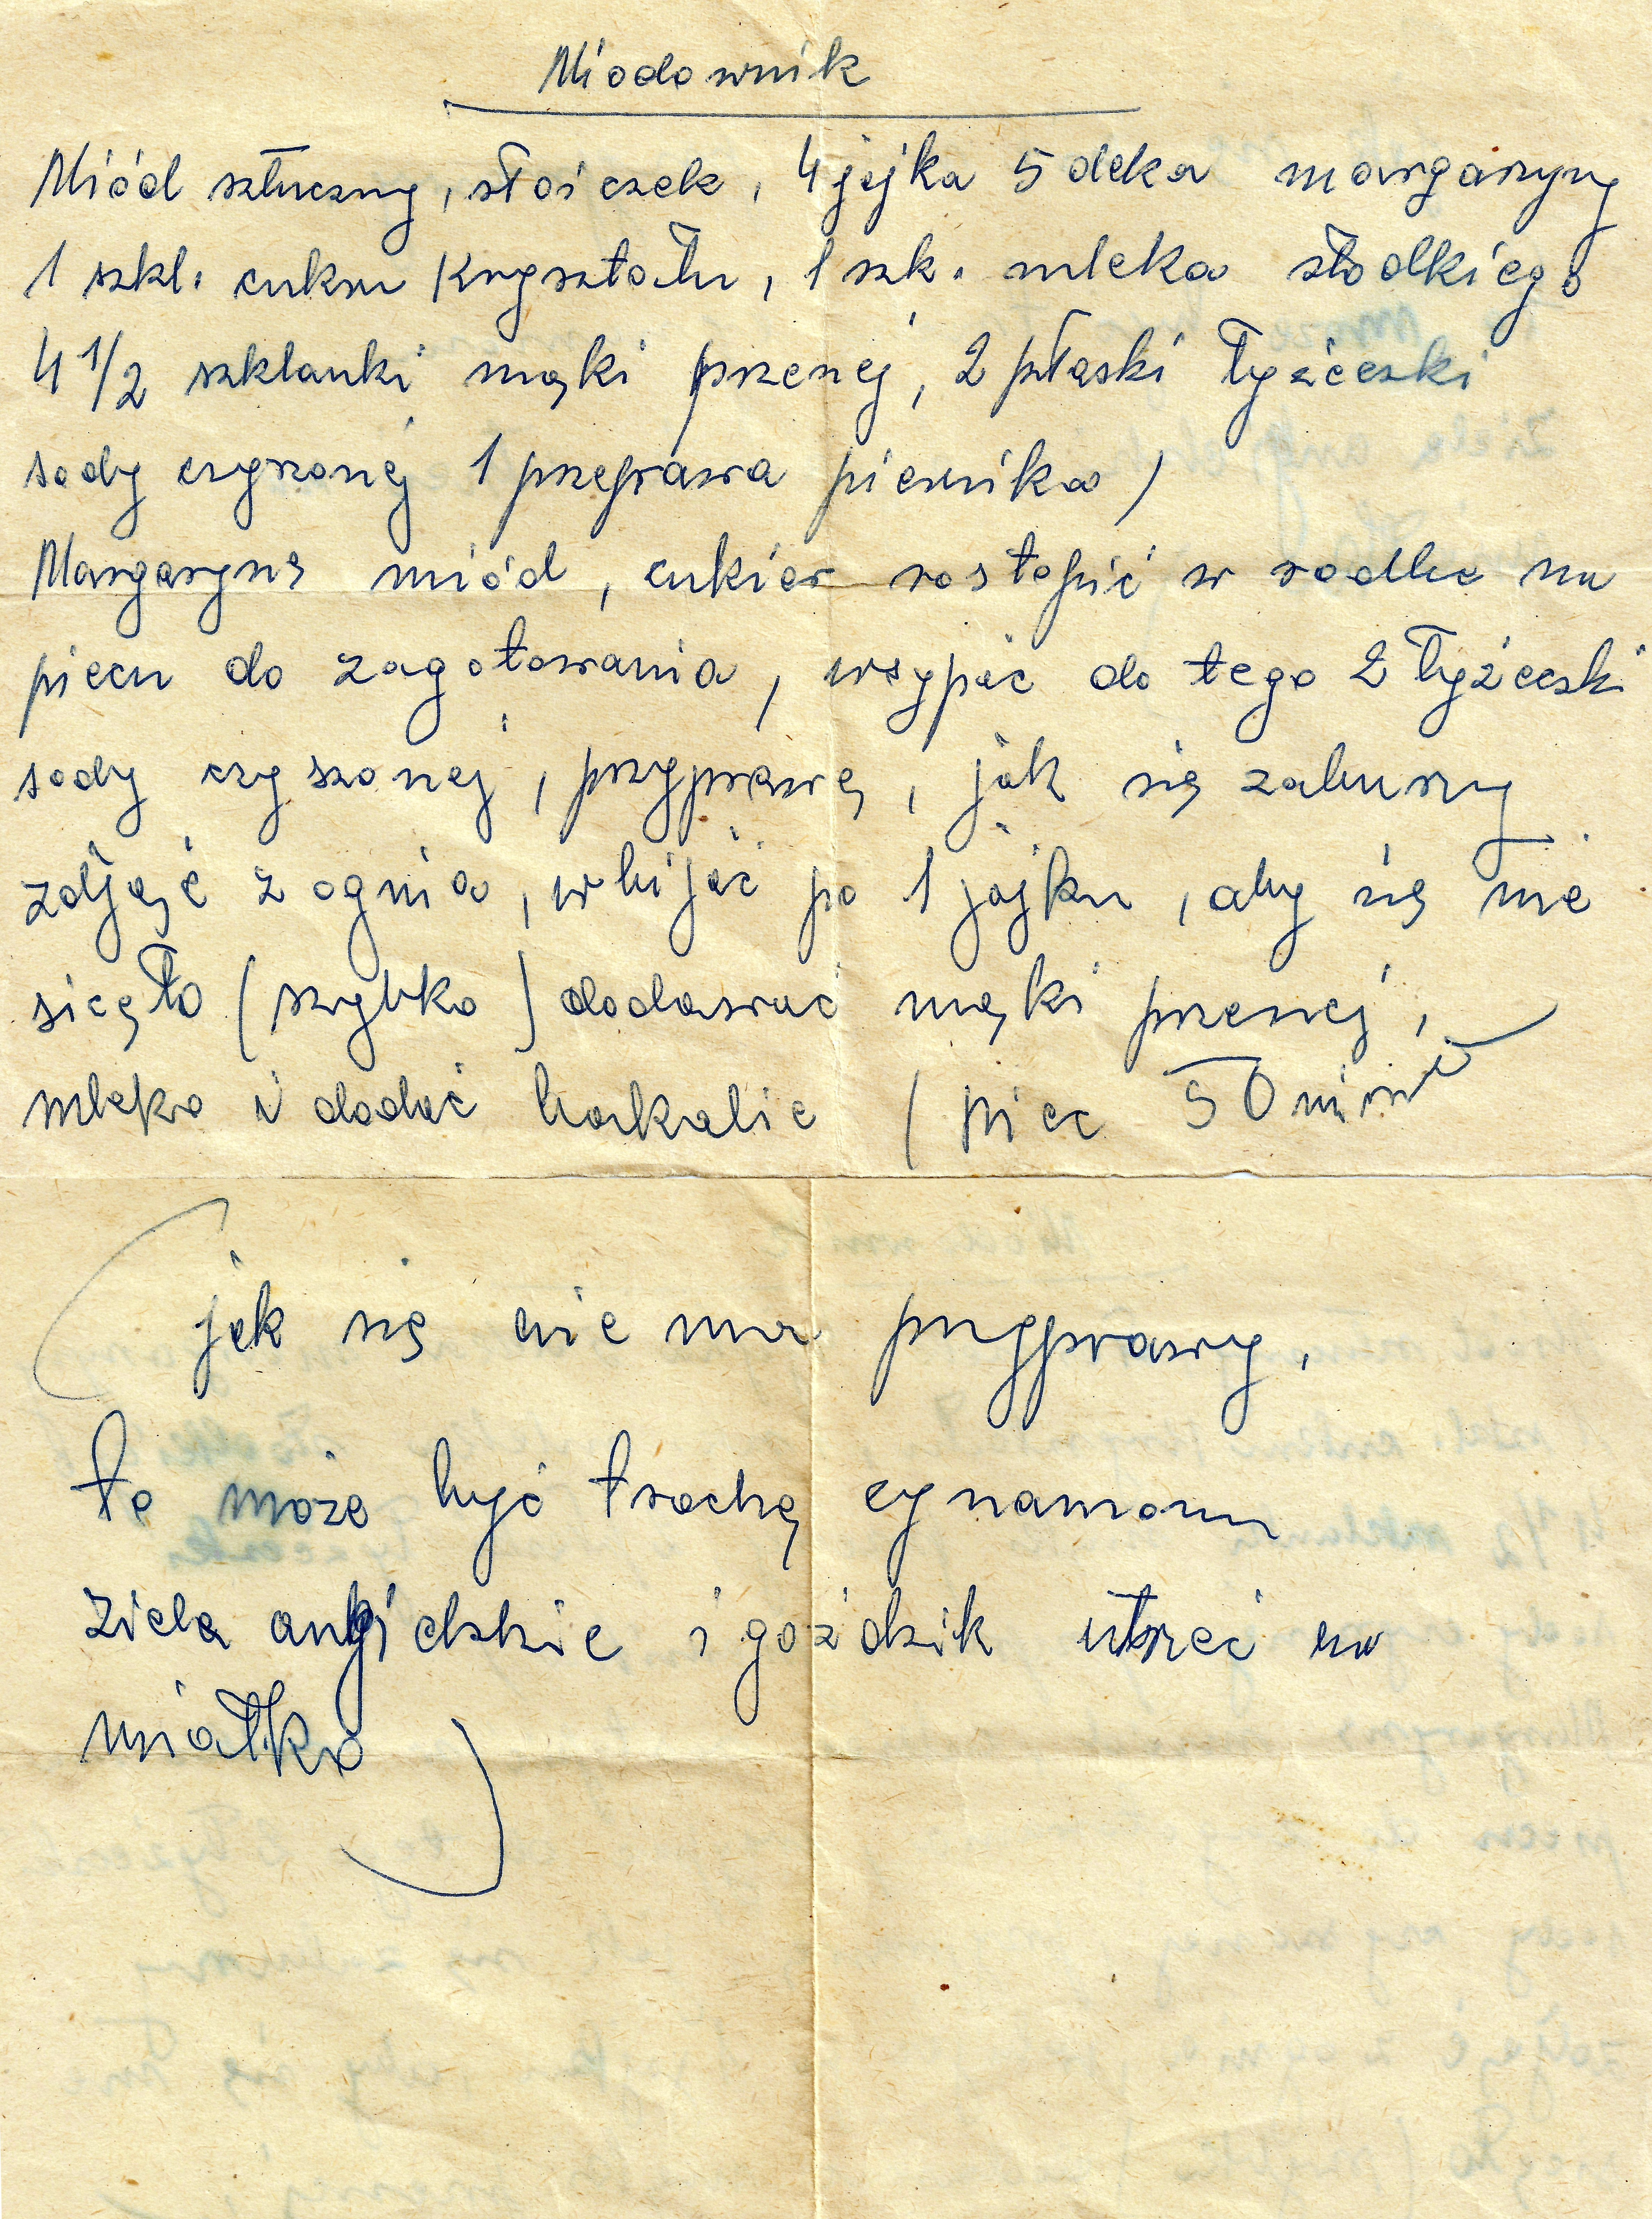 Miodownik
Miód sztuczny, słoiczek, 4 jejka 5 deka margaryny
1 szkl. cukru kryształu, 1 szk. mleka słodkiego
4 1/2 szklanki mąki przenej, 2 płaski łyżeczki
sody czyszonej 1 przeprawa piernika)
Margarynę miód, cukier rostopić w rodlu na
piecu do zagotowania, wsypać do tego 2 łyżeczki
sody czyszonej, przyprawę, jak się zaburzy
zdjąść z ognia, wbijać po 1 jajku, aby się nie
sicęło (szybko) dodawać mąki przenej,
mleko i dodać bakalie (piec 50 minut
(jak się nie ma przyprawy,
to może być trochę cynamonu
ziele angielskie i goździk utrzeć na
miałko)